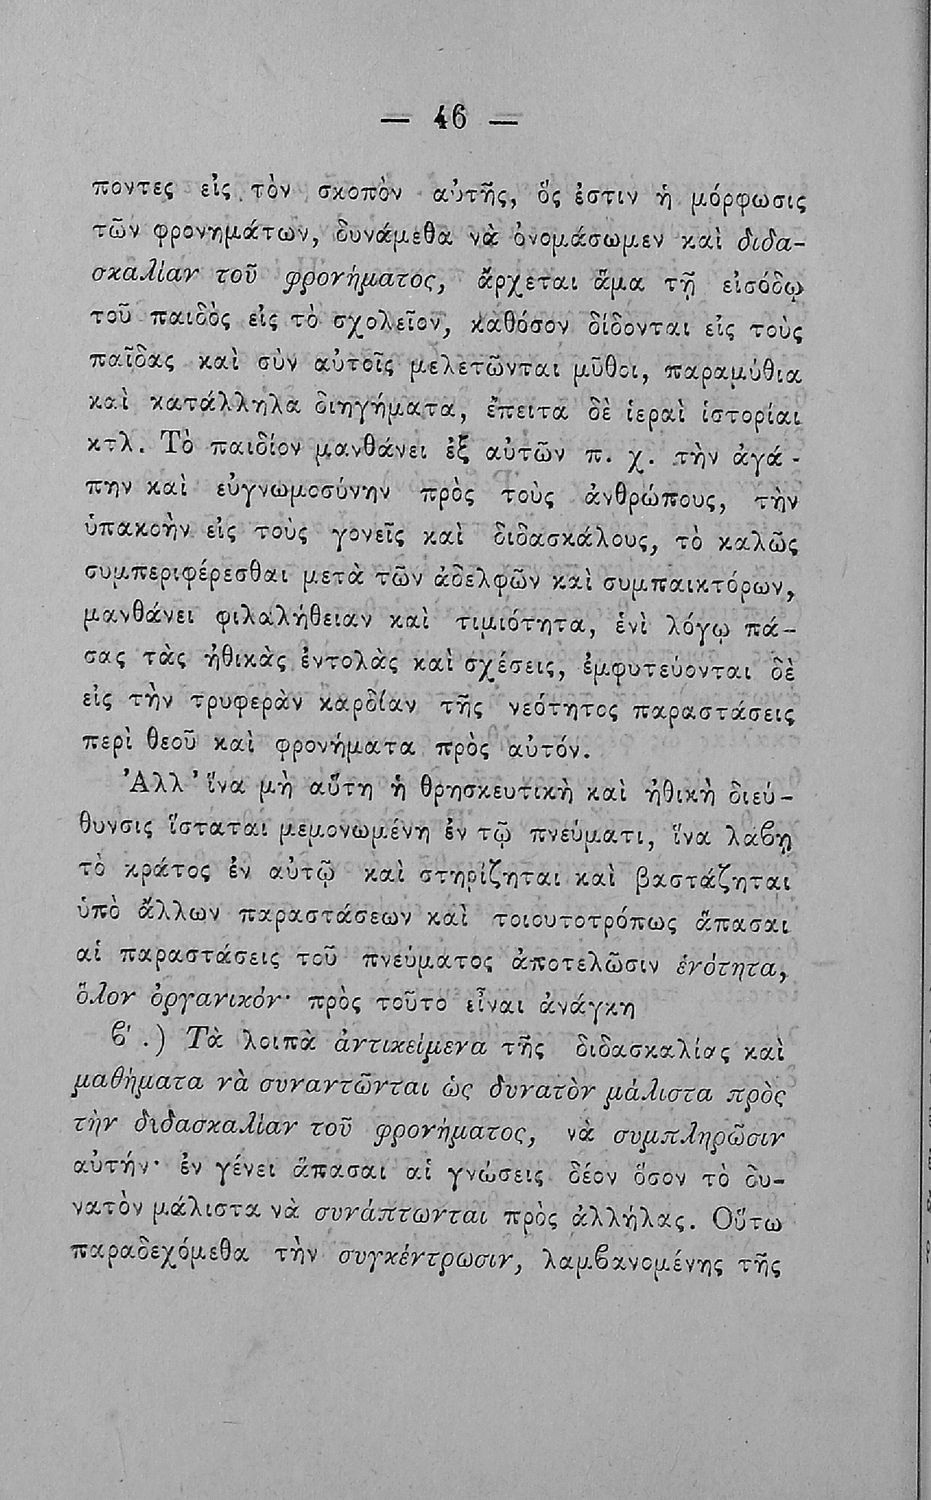 — 46 —
ποντες εἰς τὸν σκοπὸν αὐτῆς, ὅς ἐστιν ἡ μόρφωσις
τῶν φρονημάτων, δυνάμεθα νὰ ὀνομάσωμεν καὶ διδα-
σκαλίαν τοῦ φρονήματος, ἄρχεται ἅμα τῇ εἰσόδῳ
τοῦ παιδὸς εἰς τὸ σχολεῖον, καθόσον δίδονται εἰς τοὺς
παῖδας καὶ σὺν αὐτοῖς μελετῶνται μῦθοι, παραμύθια
καὶ κατάλληλα διηγήματα, ἔπειτα δὲ ἱεραὶ ἱστορίαι
κτλ. Τὸ παιδίον μανθάνει ἐξ αὐτῶν π. χ. τὴν ἀγά-
πην καὶ εὐγνωμοσύνην πρὸς τοὺς ἀνθρώπους, τὴν
ὑπακοὴν εἰς τοὺς γονεῖς καὶ διδασκάλους, τὸ καλῶς
συμπεριφέρεσθαι μετὰ τῶν ἀδελφῶν καὶ συμπαικτόρων,
μανθάνει φιλαλήθειαν καὶ τιμιότητα, ἑνὶ λόγῳ πά-
σας τὰς ἠθικὰς ἐντολὰς καὶ σχέσεις, ἐμφυτεύονται δὲ
εἰς τὴν τρυφερὰν καρδίαν τῆς νεότητος παραστάσεις
περὶ θεοῦ καὶ φρονήματα πρὸς αὐτόν.
Ἀλλ' ἵνα μὴ αὕτη ἡ θρησκευτικὴ καὶ ἠθικὴ διεύ-
θυνσις ἵσταται μεμονωμένη ἐν τῷ πνεύματι, ἵνα λαϐῃ
τὸ κράτος ἐν αὐτῷ καὶ στηρίζηται καὶ βαστάζηται
ὑπὸ ἄλλων παραστάσεων καὶ τοιουτοτρόπως ἅπασαι
αἱ παραστάσεις τοῦ πνεύματος ἀποτελῶσιν ἑνότητα,
ὅλον ὀργανικόν· πρὸς τοῦτο εἶναι ἀνάγκη
ϐ'.) Τὰ λοιπὰ ἀντικείμενα τῆς διδασκαλίας καὶ
μαθήματα νὰ συναντῶνται ὡς δυνατὸν μάλιστα πρὸς
τὴν διδασκαλίαν τοῦ φρονήματος, νὰ συμπληρῶσιν
αὐτήν· ἐν γένει ἅπασαι αἱ γνώσεις δέον ὅσον τὸ δυ-
νατὸν μάλιστα νὰ συνάπτωνται πρὸς ἀλλήλας. Οὕτω
παραδεχόμεθα τὴν συγκέντρωσιν, λαμϐανομένης τῆς